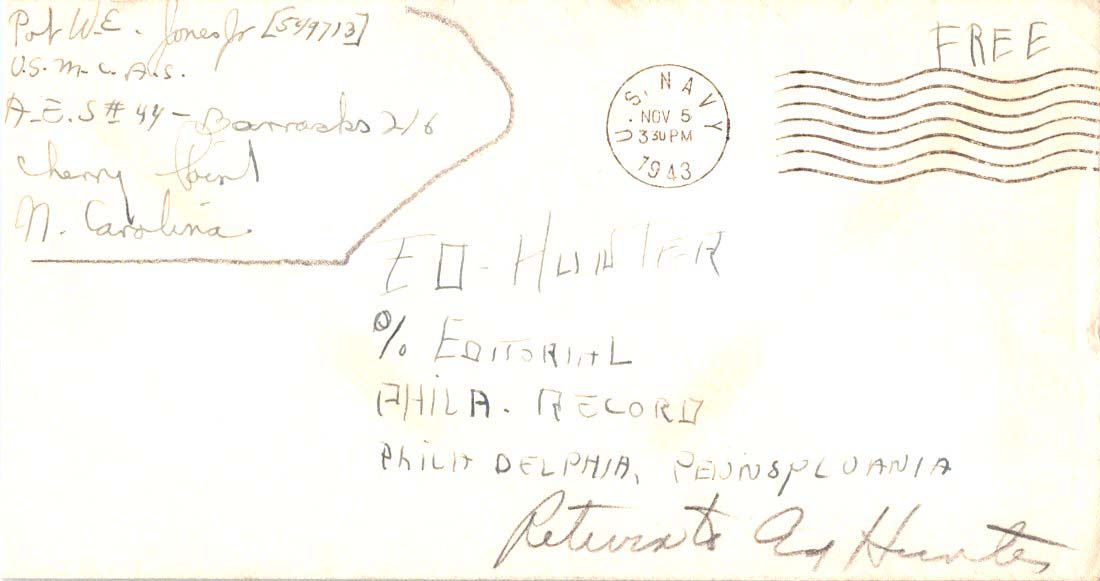 Pvt W.E. Jones Jr [549713]
U.S.M.C.A.S.
A.E.S # 44 - Barracks 216
Cherry Point
N. Carolina.
FREE
U.S. NAVY
NOV 5
3 30 PM
1943
ED - HUNTER
% EDITORIAL
PHILA. RECORD
PHILADELPHIA, PENNSPLVANIA
Return to Hunter